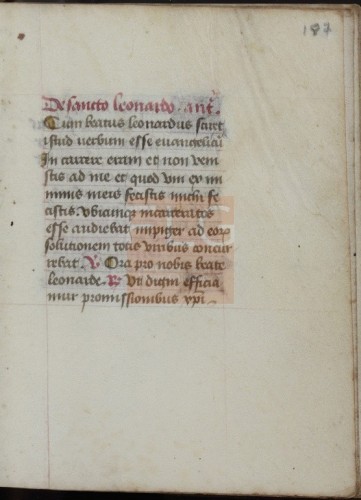 187
De sancto leonardo. ant̄.
Cum beatus leonardus sciret
istud verbum esse euangelicū
In carcere eram et non veni
stis ad me et quod vni ex mi
nimis meis fecistis michi fe
cistis. vbicunqꝫ incarceratos
esse audiebat impiger ad con
solutionem totis viribus concur
rebat. V. Ora pro nobis beate
leonarde. R. Vt digni efficia
mur promissionibus xpi.